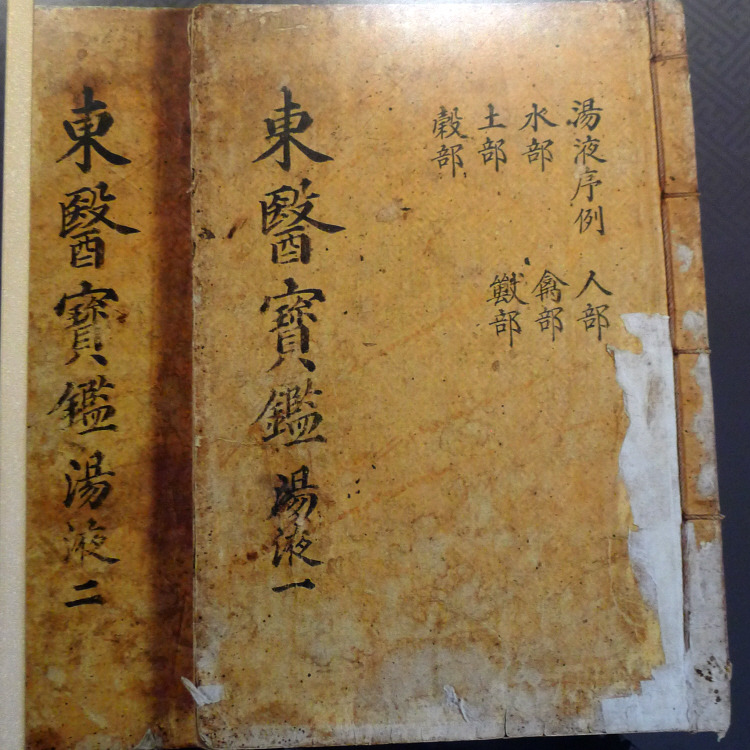 湯液序例
水部
土部
糓部
人部
禽部
獸部
東醫寶鑑 湯液 一
東醫寶鑑 湯液 二